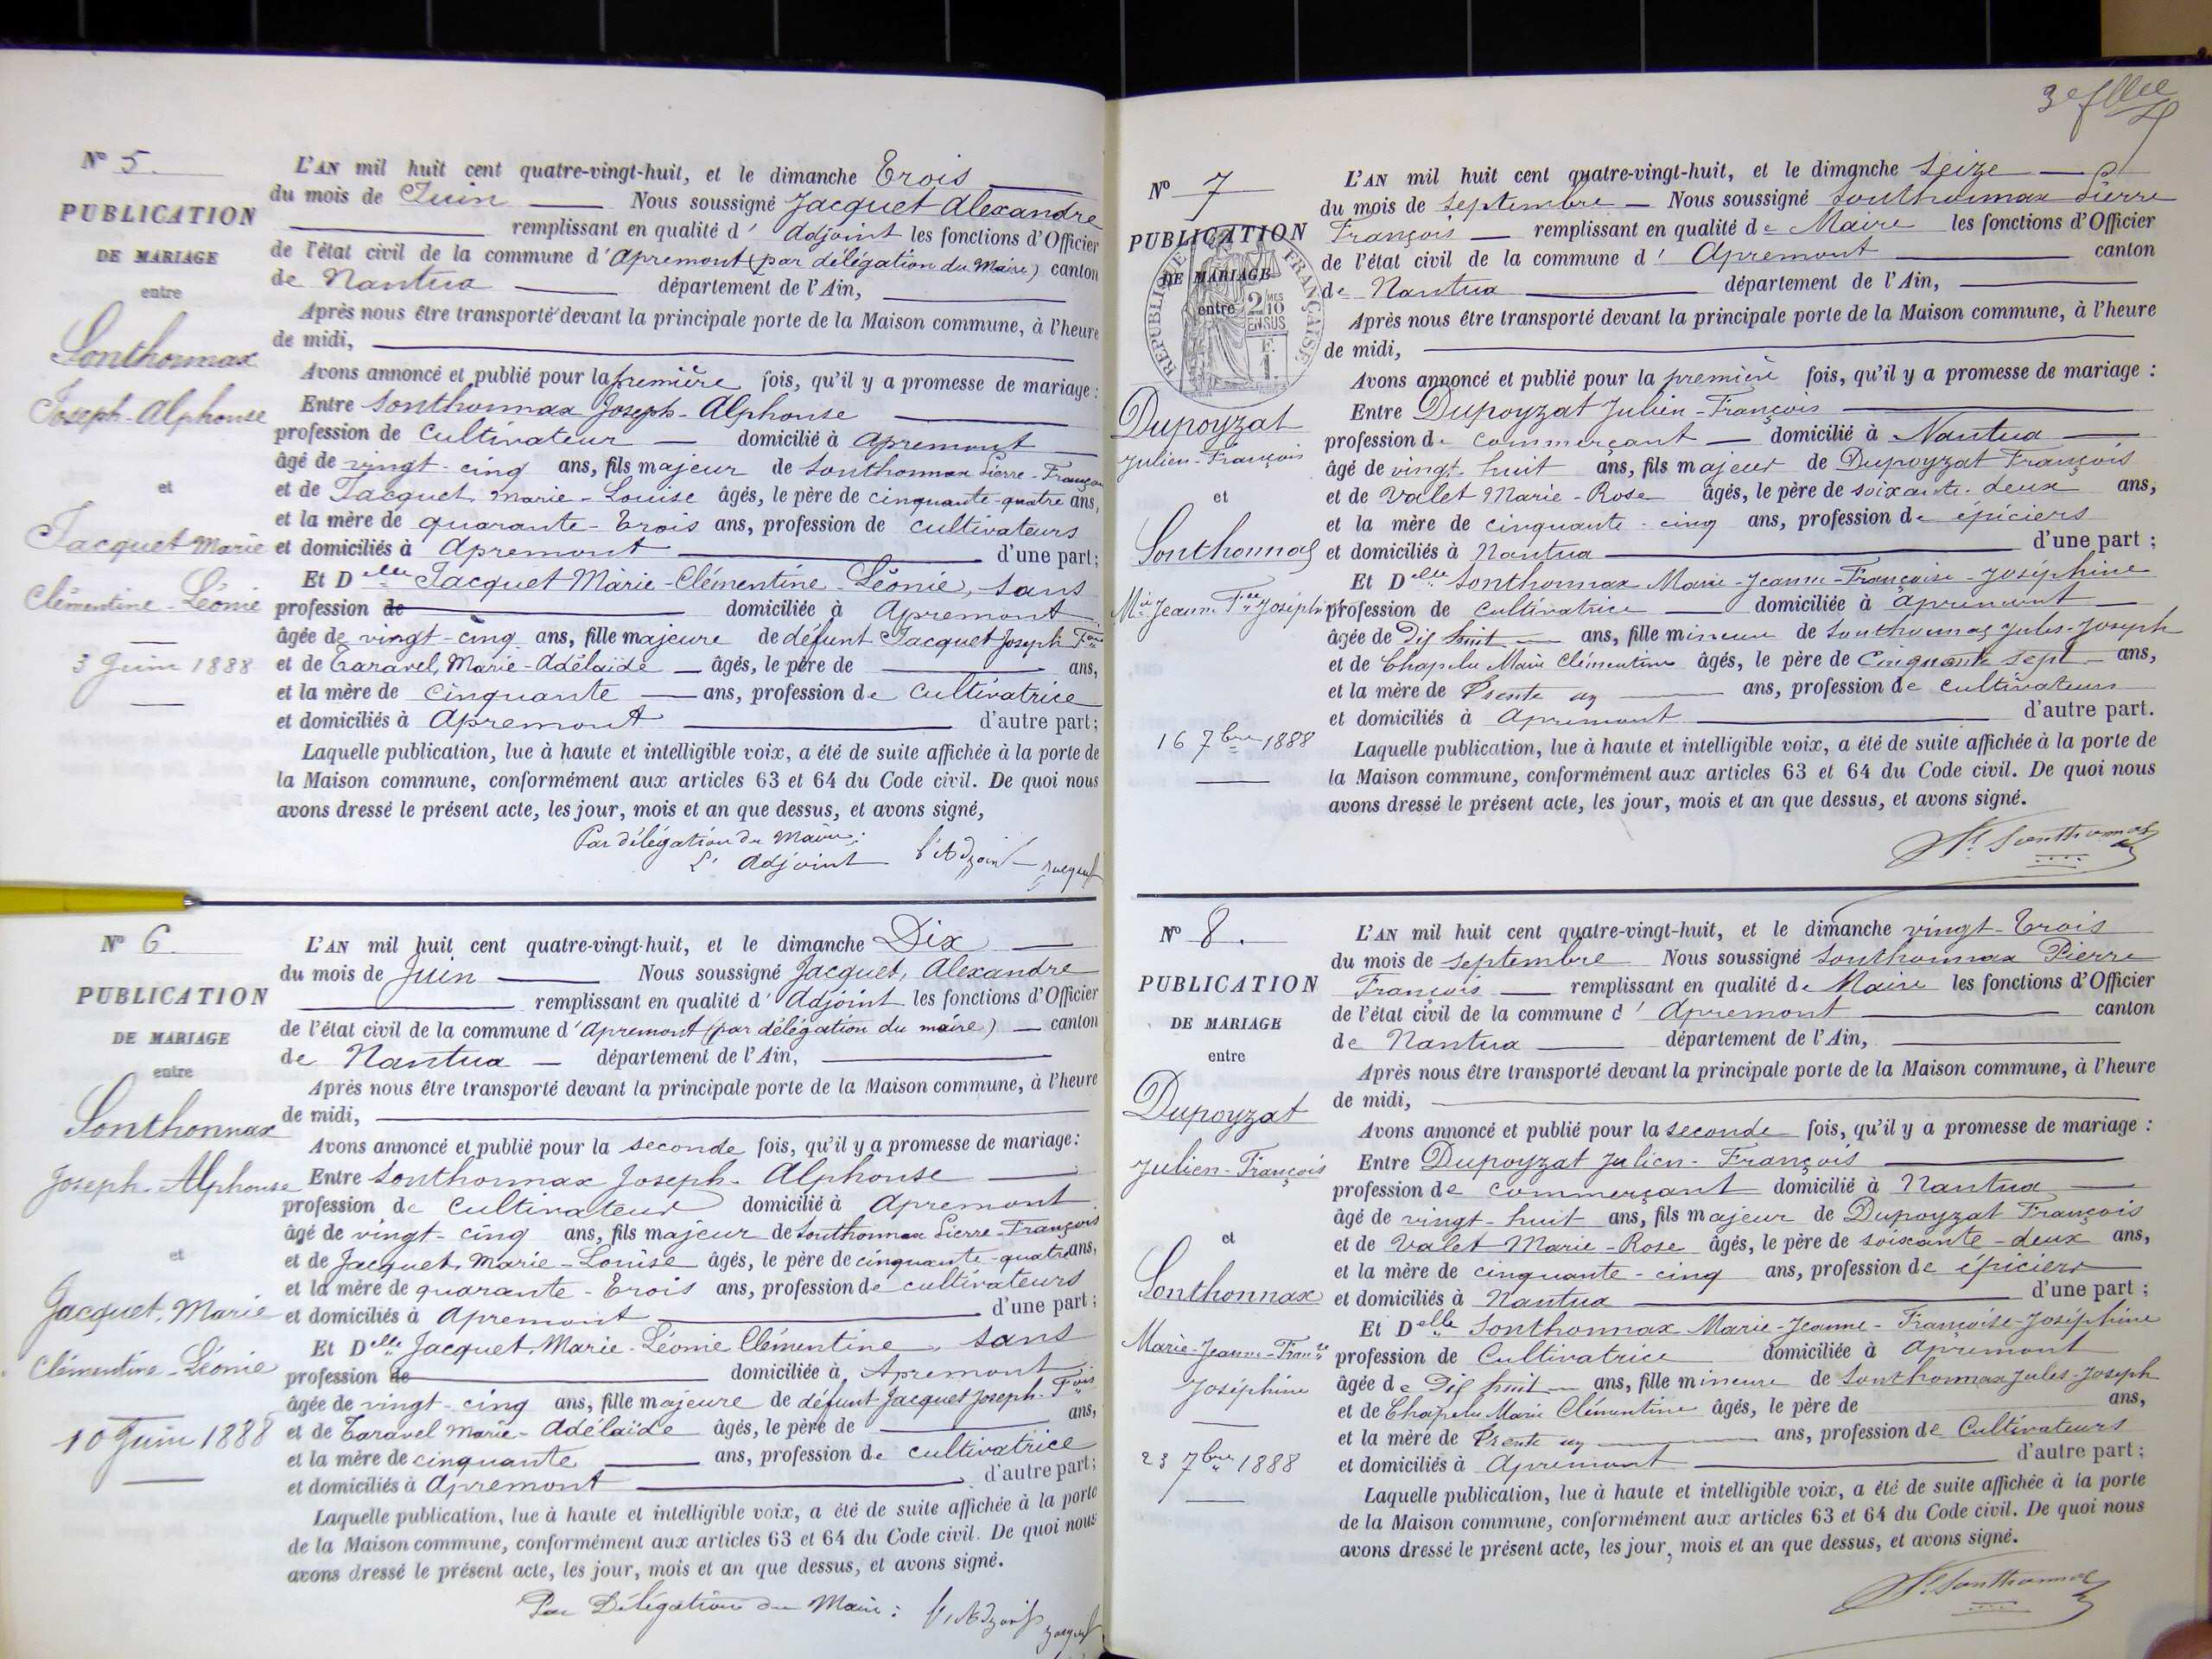 N° 5.
PUBLICATION
DE MARIAGE
entre
Sonthonnax
Joseph-Alphonse
et
Jacquet Marie
Clémentine-Léonie
3 Juin 1888
L'AN mil huit cent quatre-vingt-huit, et le dimanche Trois
du mois de Juin Nous soussigné Jacquet Alexandre
remplissant en qualité d' Adjoint les fonctions d'Officier
de l'état civil de la commune d'Apremont (par délégation du Maire) canton
de Nantua département de l'Ain,
Après nous être transporté devant la principale porte de la Maison commune, à l'heure
de midi,
Avons annoncé et publié pour la première fois, qu'il y a promesse de mariage :
Entre Sonthonnax Joseph-Alphonse
profession de Cultivateur domicilié à Apremont
âgé de vingt-cinq ans, fils majeur de Sonthonnax Pierre-François
et de Jacquet Marie-Louise âgés, le père de cinquante-quatre ans,
et la mère de quarante-trois ans, profession de cultivateurs
et domiciliés à Apremont d'une part;
Et Delle Jacquet Marie-Clémentine-Léonie, sans
profession de domiciliée à Apremont
âgée de vingt-cinq ans, fille majeure de défunt Jacquet Joseph Fois
et de Taravel, Marie-Adélaïde âgés, le père de ans,
et la mère de cinquante ans, profession de cultivatrice
et domiciliés à Apremont d'autre part;
Laquelle publication, lue à haute et intelligible voix, a été de suite affichée à la porte de
la Maison commune, conformément aux articles 63 et 64 du Code civil. De quoi nous
avons dressé le présent acte, les jour, mois et an que dessus, et avons signé,
Par délégation du Maire :
L'Adjoint l'Adjoint Jacquet
N° 6.
PUBLICATION
DE MARIAGE
entre
Sonthonnax
Joseph-Alphonse
et
Jacquet, Marie
Clémentine-Léonie
10 Juin 1888
L'AN mil huit cent quatre-vingt-huit, et le dimanche Dix
du mois de Juin Nous soussigné Jacquet, Alexandre
remplissant en qualité d' Adjoint les fonctions d'Officier
de l'état civil de la commune d'Apremont (par délégation du maire) canton
de Nantua département de l'Ain,
Après nous être transporté devant la principale porte de la Maison commune, à l'heure
de midi,
Avons annoncé et publié pour la seconde fois, qu'il y a promesse de mariage:
Entre Sonthonnax Joseph-Alphonse
profession de Cultivateur domicilié à Apremont
âgé de vingt-cinq ans, fils majeur de Sonthonnax Pierre-François
et de Jacquet, Marie-Louise âgés, le père de cinquante-quatre ans,
et la mère de quarante-trois ans, profession de cultivateurs
et domiciliés à Apremont d'une part;
Et Delle Jacquet, Marie-Léonie Clémentine, sans
profession de domiciliée à Apremont
âgée de vingt-cinq ans, fille majeure de défunt Jacquet Joseph-Fois
et de Taravel Marie-Adélaïde âgés, le père de ans,
et la mère de cinquante ans, profession de cultivatrice
et domiciliés à Apremont d'autre part;
Laquelle publication, lue à haute et intelligible voix, a été de suite affichée à la porte
de la Maison commune, conformément aux articles 63 et 64 du Code civil. De quoi nous
avons dressé le présent acte, les jour, mois et an que dessus, et avons signé.
Par Délégation du Maire : l'Adjoint Jacquet
3e flle
N° 7
PUBLICATION
DE MARIAGE
entre
RÉPUBLIQUE FRANÇAISE
2 MES
10
EN SUS
F.
1.
Dupoyzat
Julien-François
et
Sonthonnax
Mie Jeanne Fse Joséphine
16 7bre 1888
L'AN mil huit cent quatre-vingt-huit, et le dimanche Seize
du mois de Septembre Nous soussigné Sonthonnax Pierre
François remplissant en qualité de Maire les fonctions d'Officier
de l'état civil de la commune d' Apremont canton
de Nantua département de l'Ain,
Après nous être transporté devant la principale porte de la Maison commune, à l'heure
de midi,
Avons annoncé et publié pour la première fois, qu'il y a promesse de mariage :
Entre Dupoyzat Julien-François
profession de commerçant domicilié à Nantua
âgé de vingt-huit ans, fils majeur de Dupoyzat François
et de Valet Marie-Rose âgés, le père de soixante-deux ans,
et la mère de cinquante-cinq ans, profession de épiciers
et domiciliés à Nantua d'une part ;
Et Delle Sonthonnax Marie-Jeanne-Françoise-Joséphine
profession de Cultivatrice domiciliée à Apremont
âgée de Dix huit ans, fille mineure de Sonthonnax Jules-Joseph
et de Chapelu Marie Clémentine âgés, le père de Cinquante sept ans,
et la mère de Trente un ans, profession de cultivateurs
et domiciliés à Apremont d'autre part.
Laquelle publication, lue à haute et intelligible voix, a été de suite affichée à la porte de
la Maison commune, conformément aux articles 63 et 64 du Code civil. De quoi nous
avons dressé le présent acte, les jour, mois et an que dessus, et avons signé.
Sonthonnax
N° 8.
PUBLICATION
DE MARIAGE
entre
Dupoyzat
Julien-François
et
Sonthonnax
Marie-Jeanne-Franse
Joséphine
23 7bre 1888
L'AN mil huit cent quatre-vingt-huit, et le dimanche vingt-trois
du mois de Septembre Nous soussigné Sonthonnax Pierre
François remplissant en qualité de Maire les fonctions d'Officier
de l'état civil de la commune d' Apremont canton
de Nantua département de l'Ain,
Après nous être transporté devant la principale porte de la Maison commune, à l'heure
de midi,
Avons annoncé et publié pour la seconde fois, qu'il y a promesse de mariage :
Entre Dupoyzat Julien-François
profession de commerçant domicilié à Nantua
âgé de vingt-huit ans, fils majeur de Dupoyzat François
et de Valet Marie-Rose âgés, le père de soixante-deux ans,
et la mère de cinquante-cinq ans, profession de épiciers
et domiciliés à Nantua d'une part ;
Et Delle Sonthonnax Marie-Jeanne-Françoise-Joséphine
profession de Cultivatrice domiciliée à Apremont
âgée de Dix huit ans, fille mineure de Sonthonnax Jules-Joseph
et de Chapelu Marie Clémentine âgés, le père de ans,
et la mère de Trente un ans, profession de Cultivateurs
et domiciliés à Apremont d'autre part ;
Laquelle publication, lue à haute et intelligible voix, a été de suite affichée à la porte
de la Maison commune, conformément aux articles 63 et 64 du Code civil. De quoi nous
avons dressé le présent acte, les jour, mois et an que dessus, et avons signé.
Sonthonnax